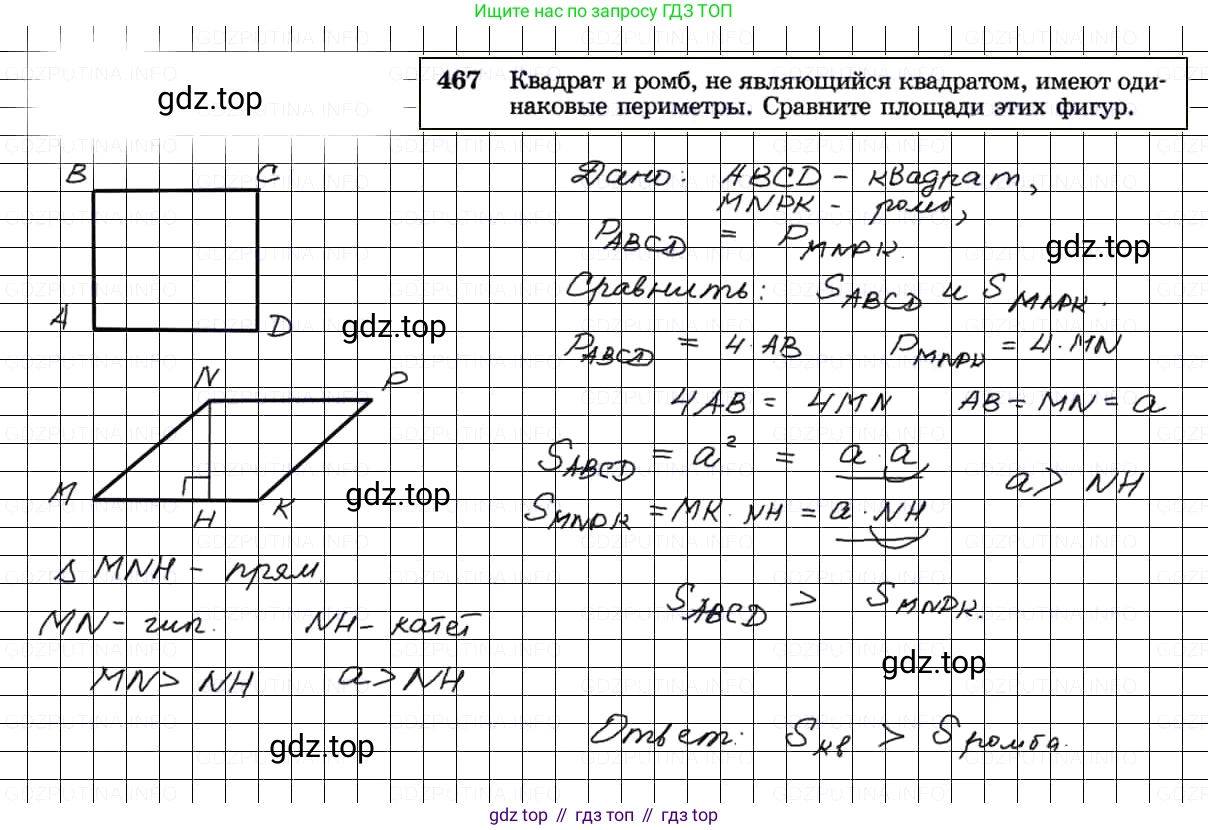 Ищите нас по запросу ГДЗ ТОП
467 Квадрат и ромб, не являющийся квадратом, имеют оди-
наковые периметры. Сравните площади этих фигур.
gdz.top
B C
A D
Дано: ABCD - квадрат,
MNPK - ромб,
P_ABCD = P_MNPK.
gdz.top
Сравнить: S_ABCD и S_MNPK.
gdz.top
P_ABCD = 4·AB P_MNPK = 4·MN
N P
4AB = 4MN AB = MN = a
S_ABCD = a² = a·a
a > NH
M H K
gdz.top
S_MNPK = MK·NH = a·NH
Δ MNH - прям.
MN - гип. NH - катет
MN > NH a > NH
S_ABCD > S_MNPK.
gdz.top
gdz.top
Ответ: S кв > S ромба.
gdz top // гдз топ // gdz top
GDZPUTINA.INFO